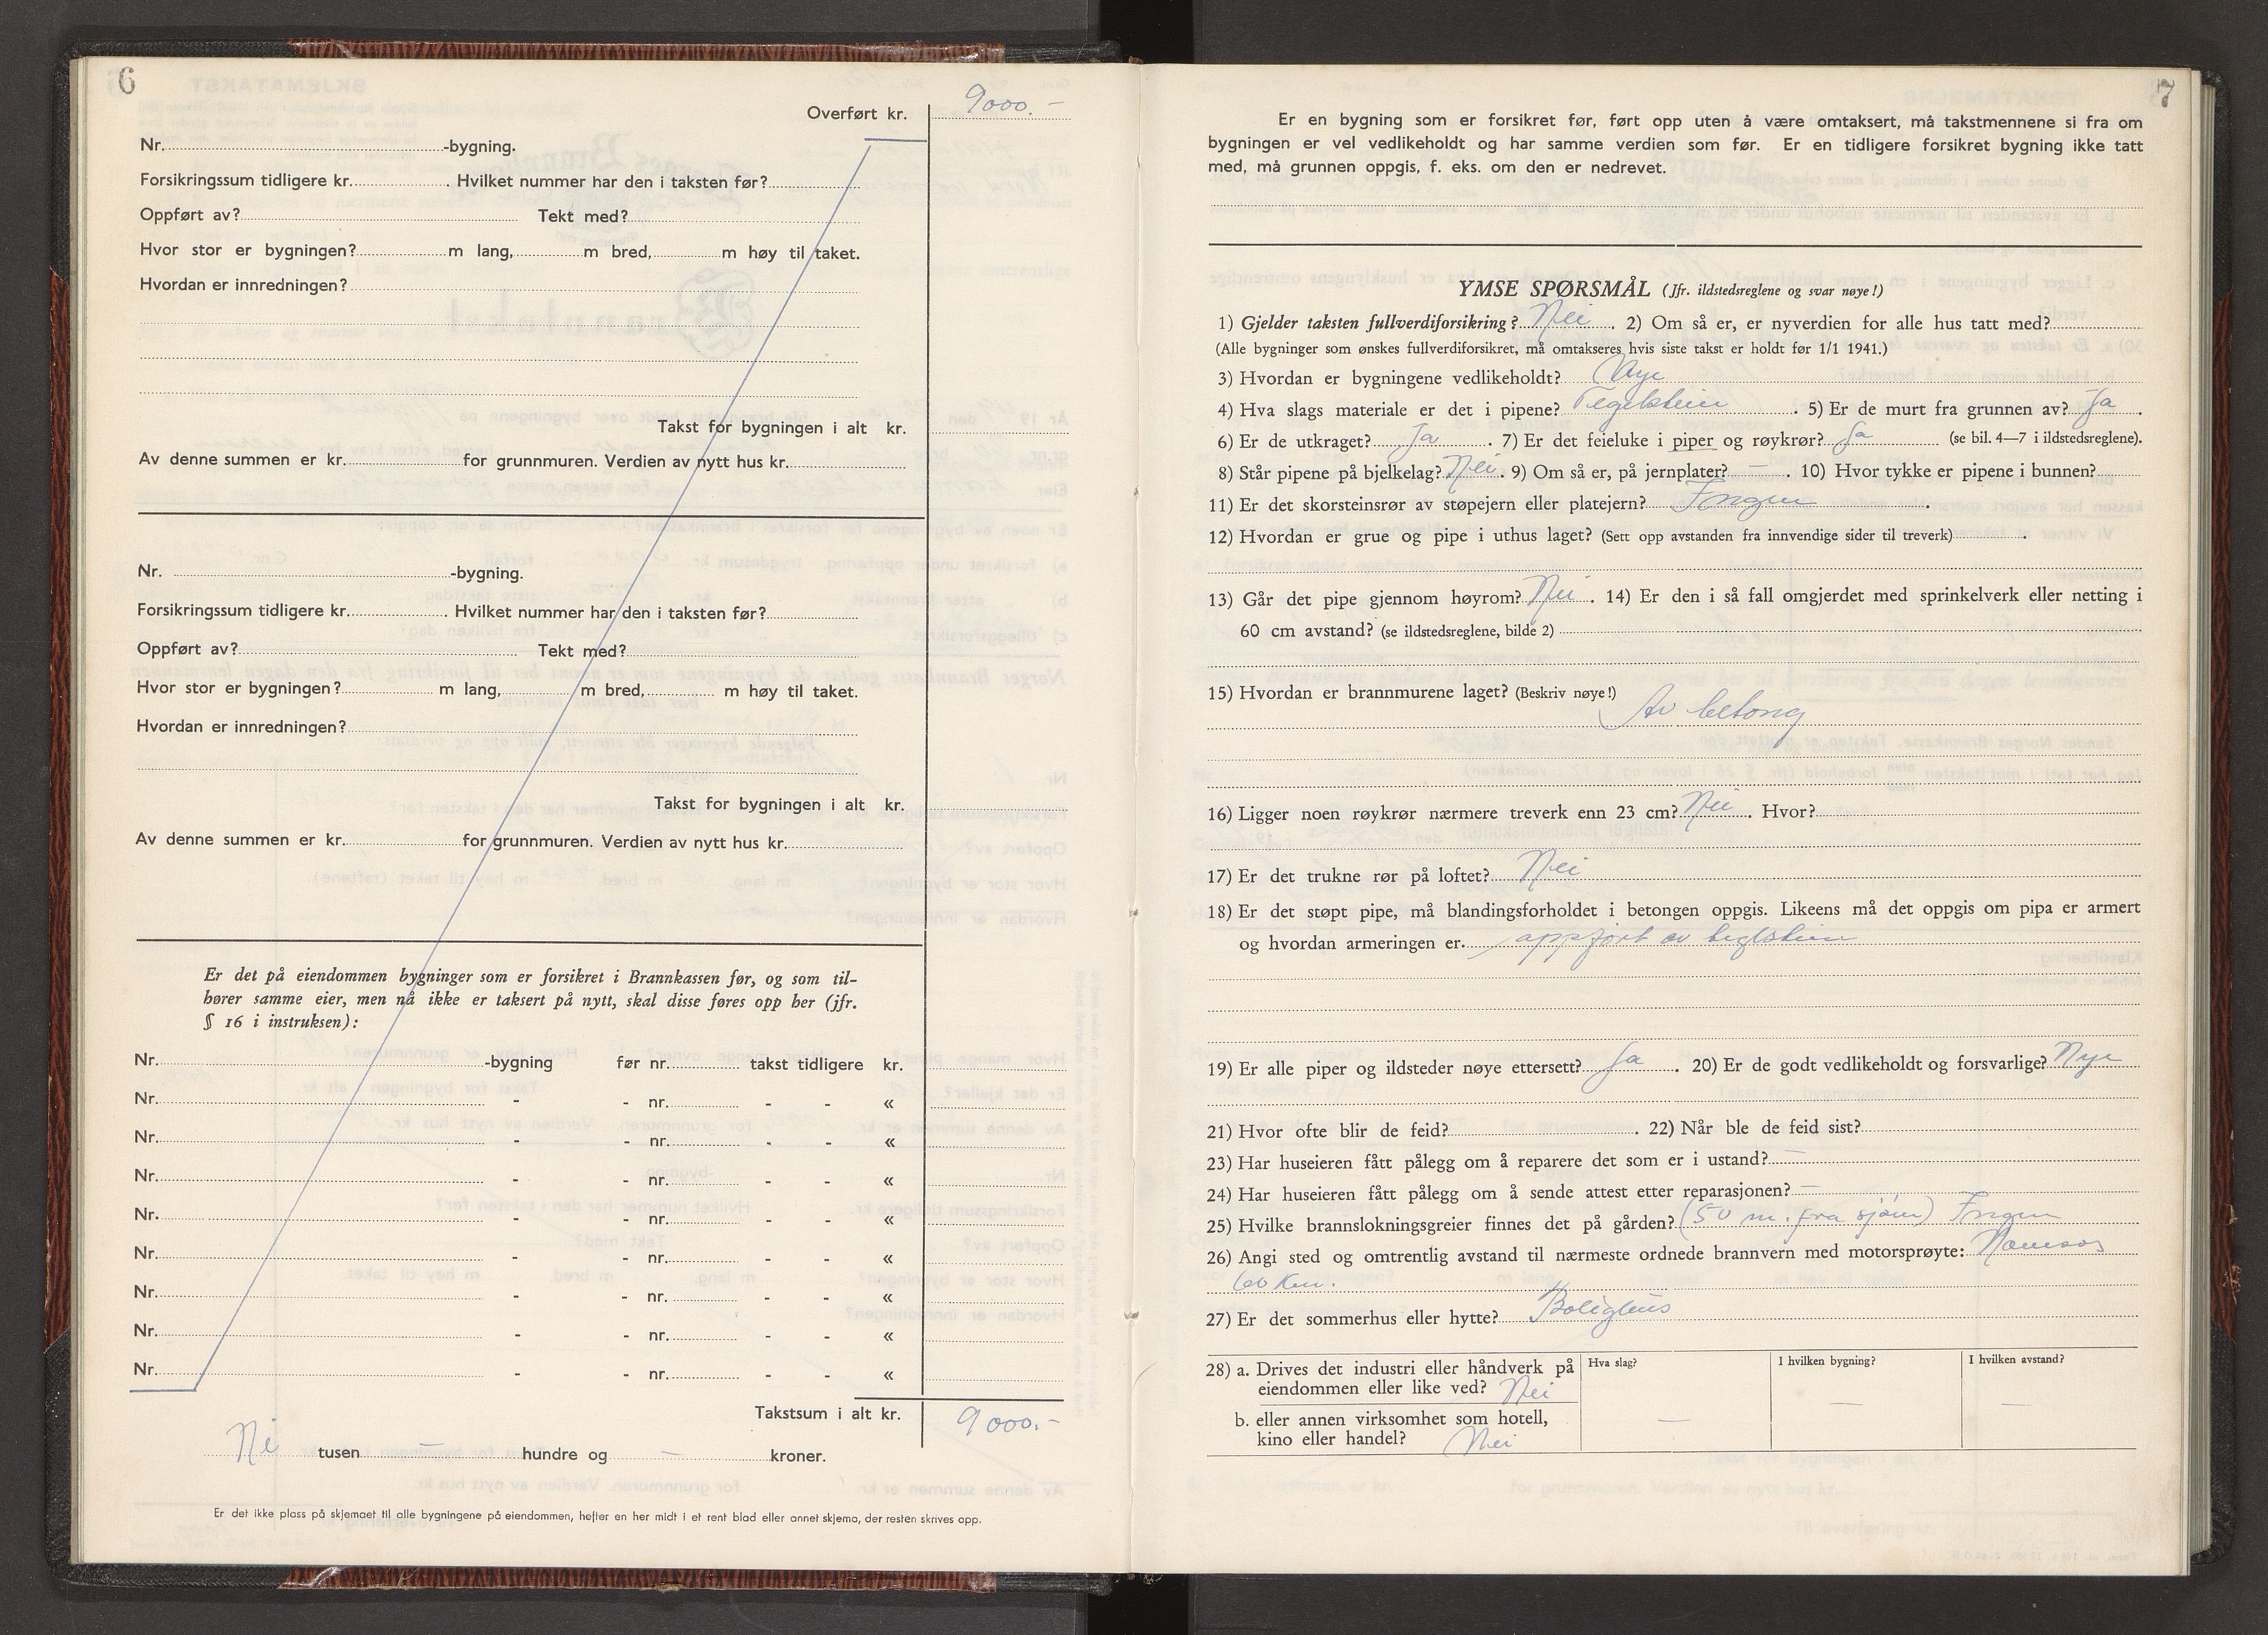 6
Overført kr. 9000.-
Nr. -bygning.
Forsikringssum tidligere kr. . Hvilket nummer har den i taksten før?
Oppført av? Tekt med?
Hvor stor er bygningen? m lang, m bred, m høy til taket.
Hvordan er innredningen?
Takst for bygningen i alt kr.
Av denne summen er kr. for grunnmuren. Verdien av nytt hus kr.
Nr. -bygning.
Forsikringssum tidligere kr. . Hvilket nummer har den i taksten før?
Oppført av? Tekt med?
Hvor stor er bygningen? m lang, m bred, m høy til taket.
Hvordan er innredningen?
Takst for bygningen i alt kr.
Av denne summen er kr. for grunnmuren. Verdien av nytt hus kr.
Er det på eiendommen bygninger som er forsikret i Brannkassen før, og som til-
hører samme eier, men nå ikke er taksert på nytt, skal disse føres opp her (jfr.
§ 16 i instruksen):
Nr. -bygning før nr. takst tidligere kr.
Nr. - - nr. - - «
Nr. - - nr. - - «
Nr. - - nr. - - «
Nr. - - nr. - - «
Nr. - - nr. - - «
Nr. - - nr. - - «
Nr. - - nr. - - «
Nr. - - nr. - - «
Takstsum i alt kr. 9000.-
Ni tusen — hundre og — kroner.
Er det ikke plass på skjemaet til alle bygningene på eiendommen, hefter en her midt i et rent blad eller annet skjema, der resten skrives opp.
7
Er en bygning som er forsikret før, ført opp uten å være omtaksert, må takstmennene si fra om
bygningen er vel vedlikeholdt og har samme verdien som før. Er en tidligere forsikret bygning ikke tatt
med, må grunnen oppgis, f. eks. om den er nedrevet.
YMSE SPØRSMÅL (Jfr. ildstedsreglene og svar nøye!)
1) Gjelder taksten fullverdiforsikring? Nei . 2) Om så er, er nyverdien for alle hus tatt med?
(Alle bygninger som ønskes fullverdiforsikret, må omtakseres hvis siste takst er holdt før 1/1 1941.)
3) Hvordan er bygningene vedlikeholdt? Nye
4) Hva slags materiale er det i pipene? Teglstein . 5) Er de murt fra grunnen av? Ja .
6) Er de utkraget? Ja . 7) Er det feieluke i piper og røykrør? Ja (se bil. 4—7 i ildstedsreglene).
8) Står pipene på bjelkelag? Nei . 9) Om så er, på jernplater? — . 10) Hvor tykke er pipene i bunnen?
11) Er det skorsteinsrør av støpejern eller platejern? Ingen .
12) Hvordan er grue og pipe i uthus laget? (Sett opp avstanden fra innvendige sider til treverk) .
13) Går det pipe gjennom høyrom? Nei . 14) Er den i så fall omgjerdet med sprinkelverk eller netting i
60 cm avstand? (se ildstedsreglene, bilde 2)
15) Hvordan er brannmurene laget? (Beskriv nøye!)
Av betong
16) Ligger noen røykrør nærmere treverk enn 23 cm? Nei . Hvor?
17) Er det trukne rør på loftet? Nei
18) Er det støpt pipe, må blandingsforholdet i betongen oppgis. Likeens må det oppgis om pipa er armert
og hvordan armeringen er. oppført av teglstein
19) Er alle piper og ildsteder nøye ettersett? Ja . 20) Er de godt vedlikeholdt og forsvarlige? Nye
21) Hvor ofte blir de feid? . 22) Når ble de feid sist?
23) Har huseieren fått pålegg om å reparere det som er i ustand? —
24) Har huseieren fått pålegg om å sende attest etter reparasjonen? —
25) Hvilke brannslokningsgreier finnes det på gården? (50 m. fra sjøen) Ingen
26) Angi sted og omtrentlig avstand til nærmeste ordnede brannvern med motorsprøyte: Namsos
60 km.
27) Er det sommerhus eller hytte? Bolighus
28) a. Drives det industri eller håndverk på Hva slag? I hvilken bygning? I hvilken avstand?
eiendommen eller like ved? Nei
b. eller annen virksomhet som hotell, — — —
kino eller handel? Nei